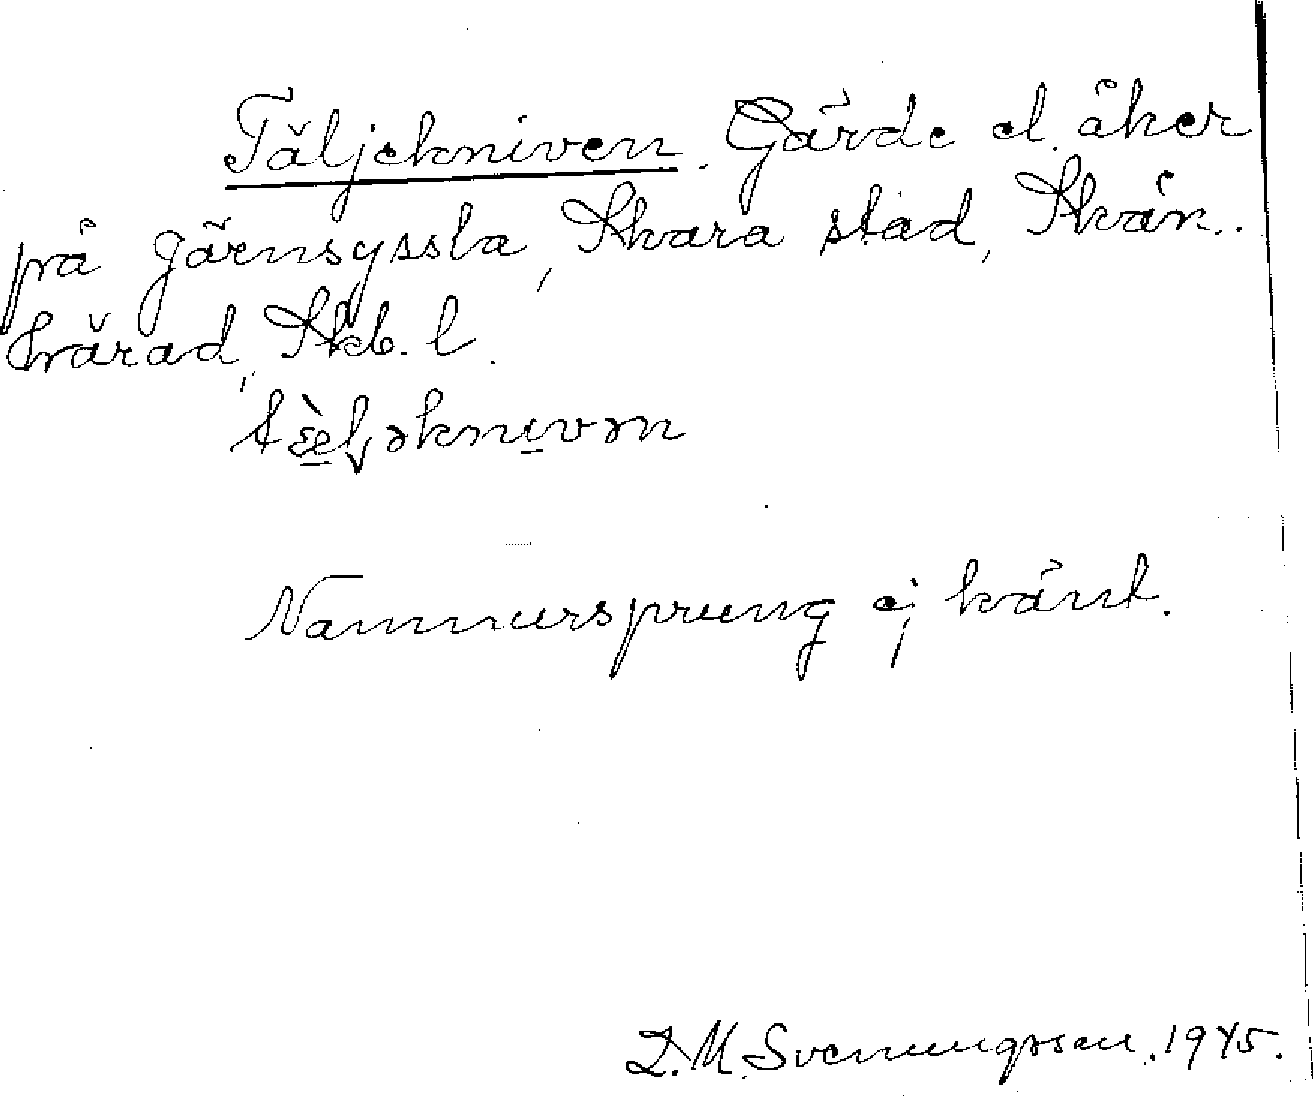 Täljekniven. Gärde el. åker
på Järnsyssla, Skara stad, Skån..
härad, Skb. l.
Namnursprung ej känt.
D. M. Svenungsson. 1945.